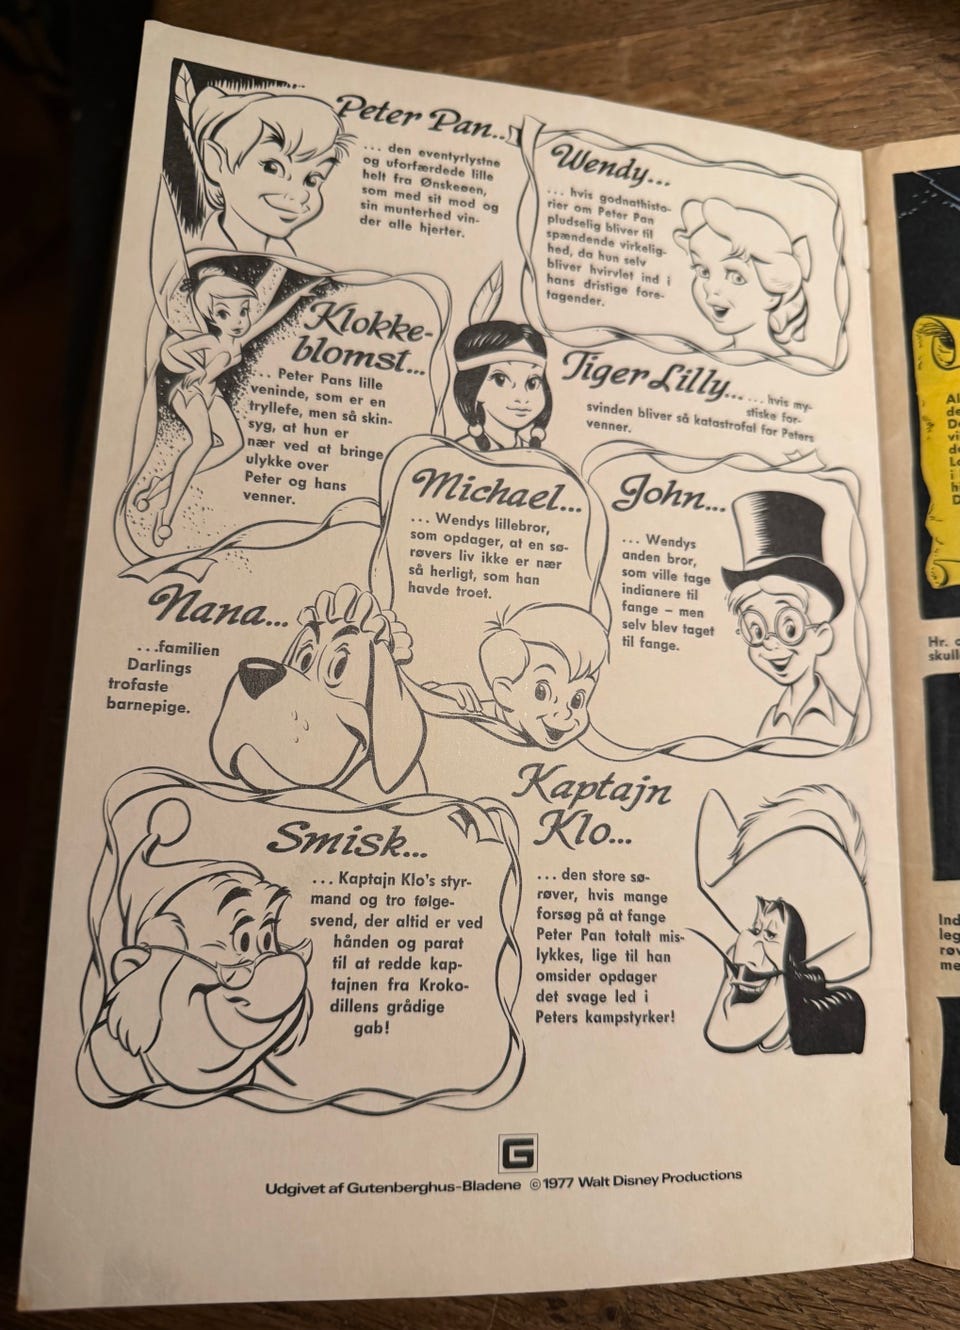 Peter Pan...
... den eventyrlystne
og uforfærdede lille
helt fra Ønskeøen,
som med sit mod og
sin munterhed vin-
der alle hjerter.
Wendy...
... hvis godnathisto-
rier om Peter Pan
pludselig bliver til
spændende virkelig-
hed, da hun selv
bliver hvirvlet ind i
hans dristige fore-
tagender.
Klokke-
blomst...
... Peter Pans lille
veninde, som er en
tryllefe, men så skin-
syg, at hun er
nær ved at bringe
ulykke over
Peter og hans
venner.
Tiger Lilly...
... hvis my-
stiske for-
svinden bliver så katastrofal for Peters
venner.
Michael...
... Wendys lillebror,
som opdager, at en sø-
røvers liv ikke er nær
så herligt, som han
havde troet.
John...
... Wendys
anden bror,
som ville tage
indianere til
fange – men
selv blev taget
til fange.
Nana...
...familien
Darlings
trofaste
barnepige.
Smisk...
... Kaptajn Klo's styr-
mand og tro følge-
svend, der altid er ved
hånden og parat
til at redde kap-
tajnen fra Kroko-
dillens grådige
gab!
Kaptajn
Klo...
... den store sø-
røver, hvis mange
forsøg på at fange
Peter Pan totalt mis-
lykkes, lige til han
omsider opdager
det svage led i
Peters kampstyrker!
G
Udgivet af Gutenberghus-Bladene © 1977 Walt Disney Productions
Hr.
skull
Ind
leg
røv
me